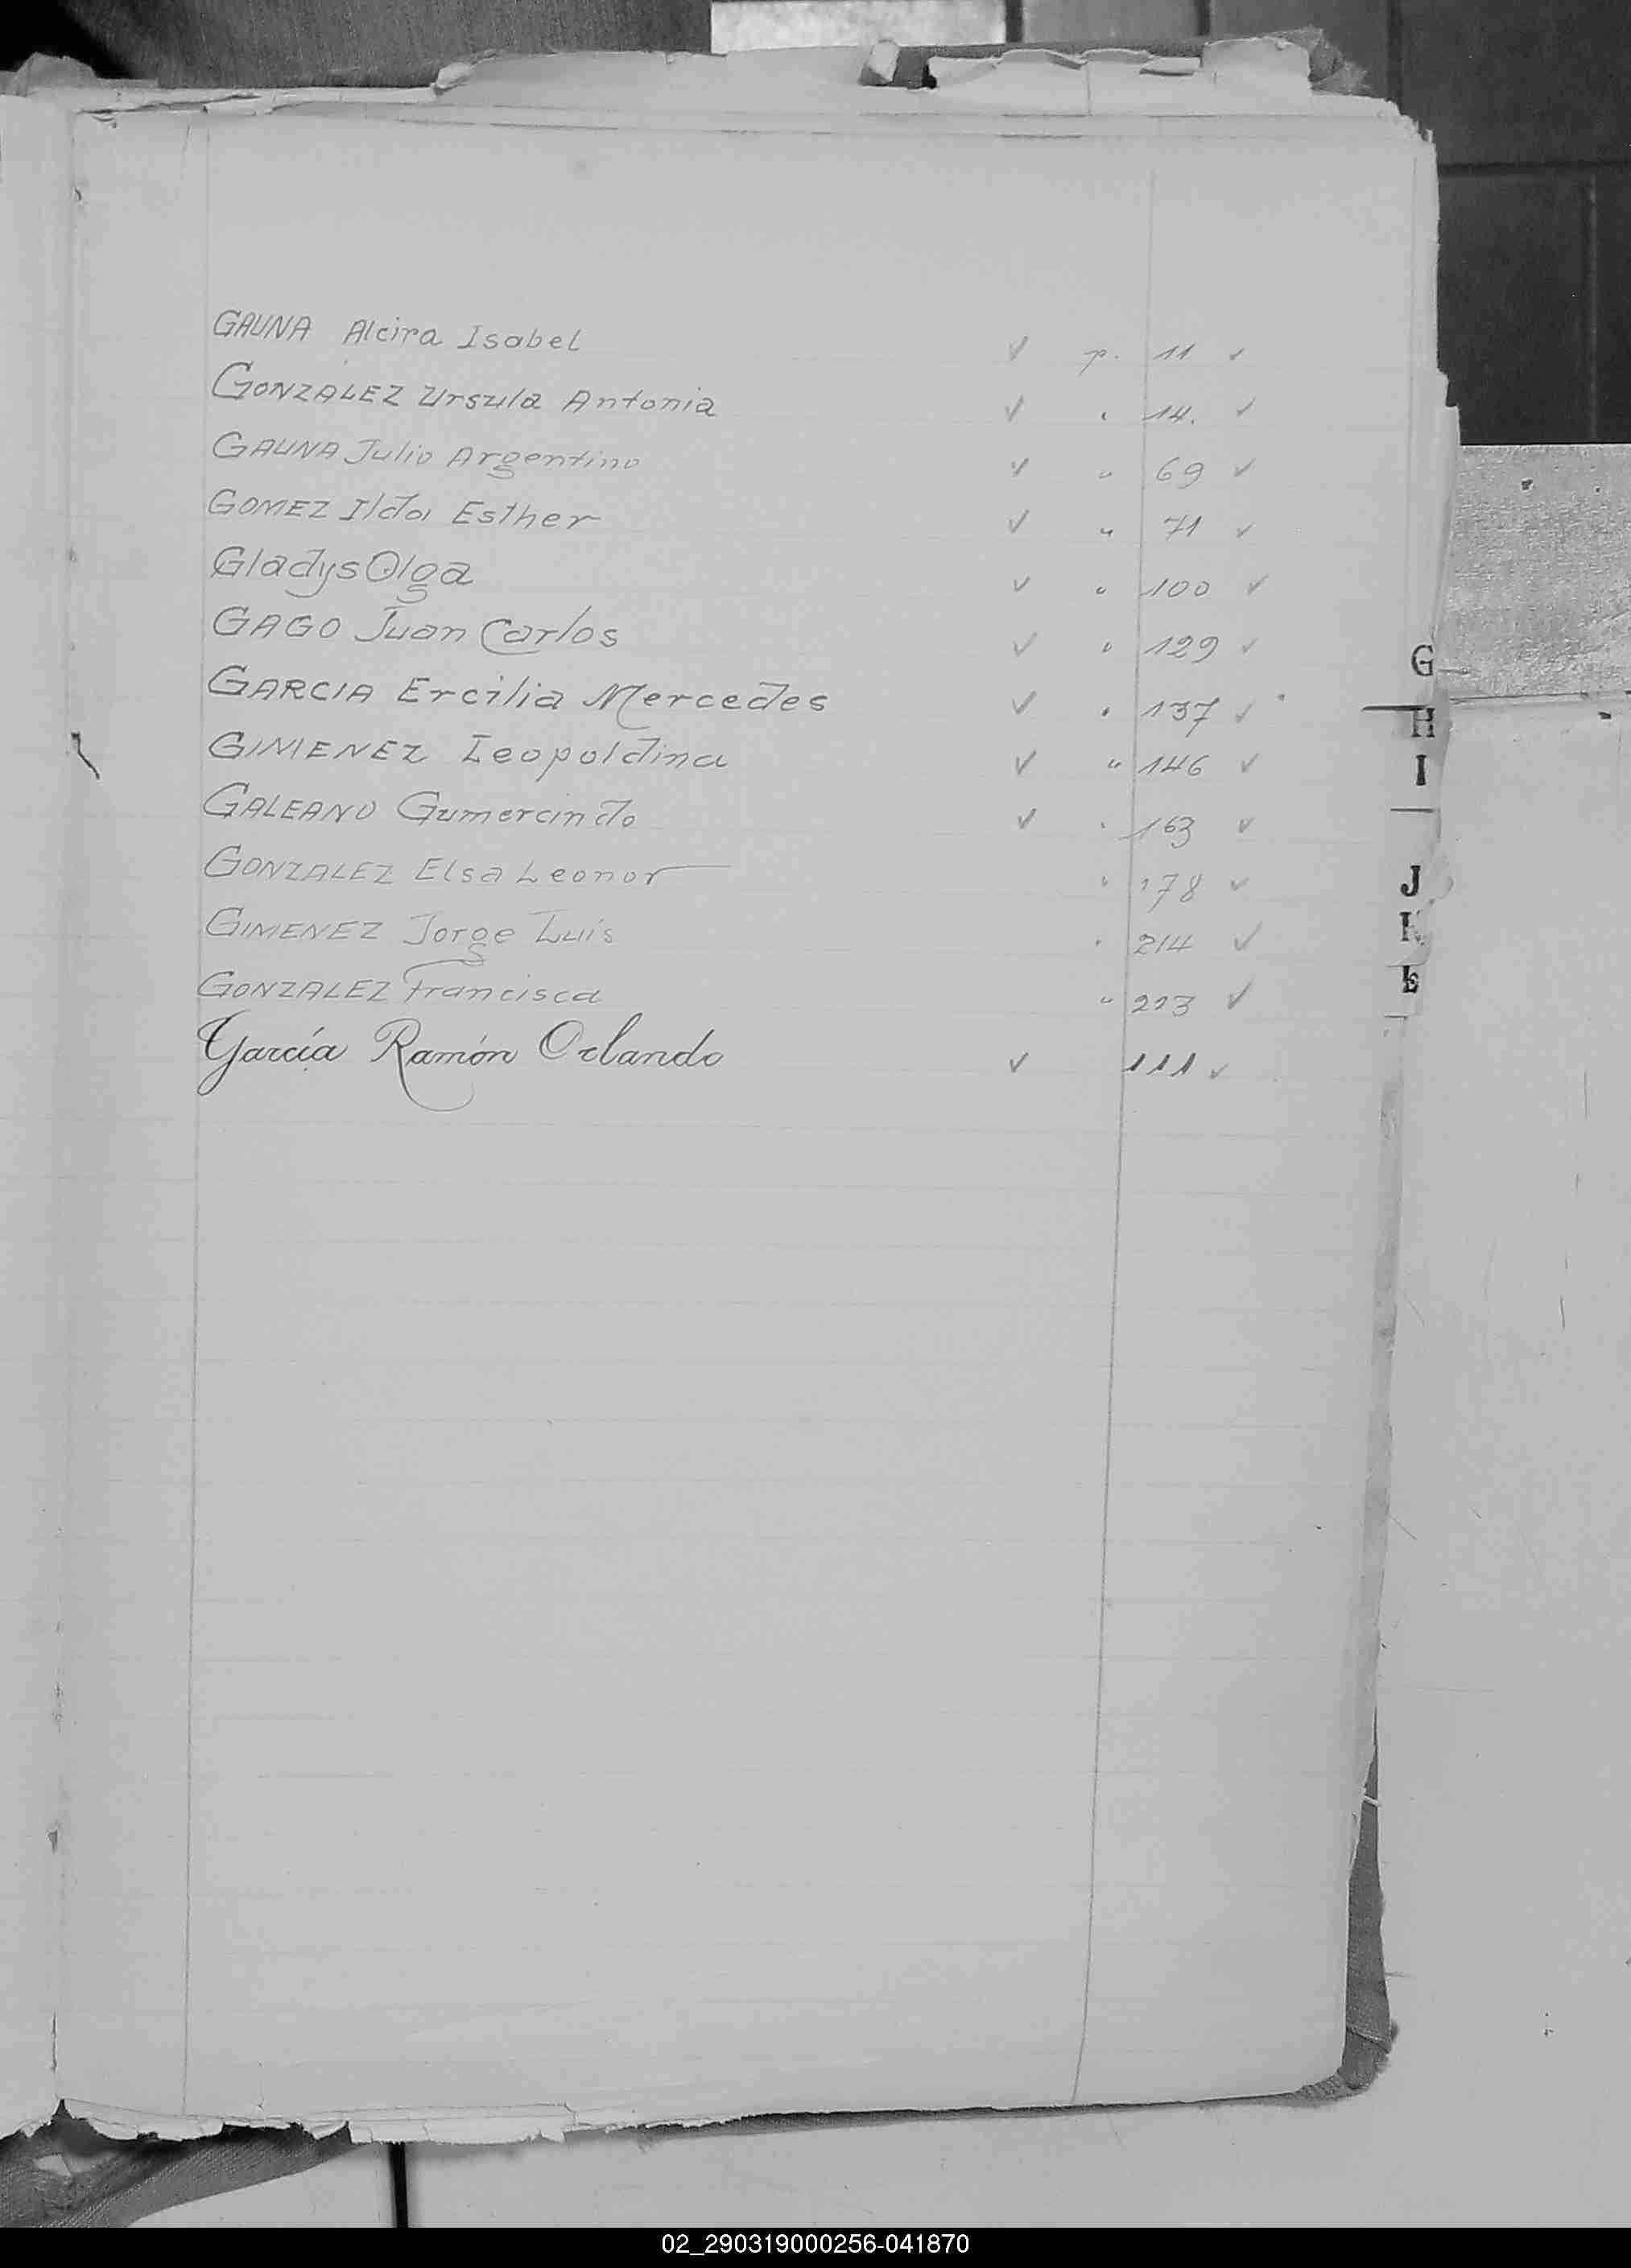 GAUNA Alcira Isabel ✓ p. 11 ✓
GONZÁLEZ Ursula Antonia ✓ " 14. ✓
GAUNA Julio Argentino ✓ " 69 ✓
GOMEZ Ilda Esther ✓ " 71 ✓
Gladys Olga ✓ " 100 ✓
GAGO Juan Carlos ✓ " 129 ✓
GARCIA Ercilia Mercedes ✓ " 137 ✓
GIMENEZ Leopoldina ✓ " 146 ✓
GALEANO Gumercindo ✓ " 163 ✓
GONZALEZ Elsa Leonor " 178 ✓
GIMENEZ Jorge Luis " 214 ✓
GONZALEZ Francisca " 223 ✓
García Ramón Orlando ✓ 111 ✓
G
H
I
J
K
L
02_290319000256-041870